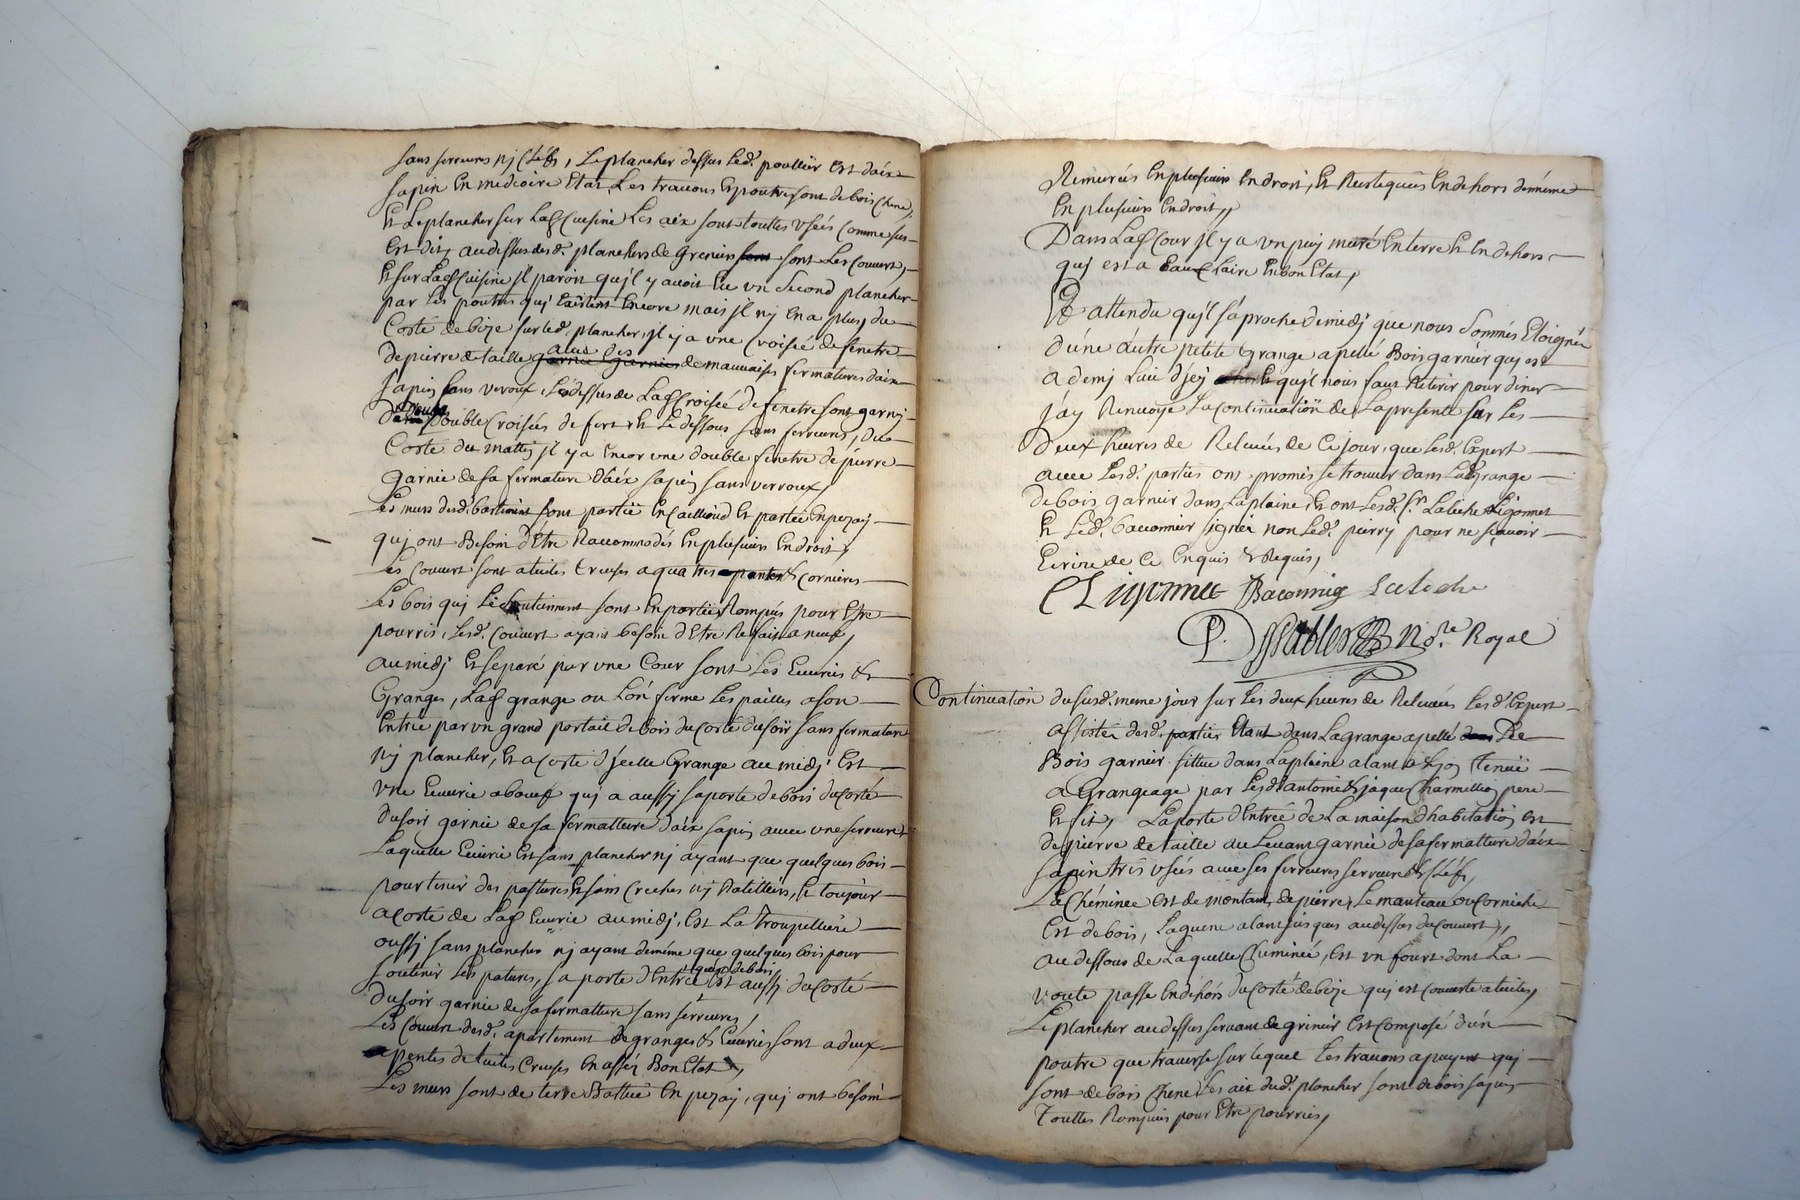 sans serreures nj Clefs, Le plancher dessus led. poullier est d'aix
sapin En mediocre Etat Les travons Et poutre sont de bois chene,
Et Le plancher sur Lad Cuisine Les aix sont toutes usées Comme sus
Est dit, au dessus desd. planchers de greniers sont Les Couvert,
Et sur Lad Cuisine Jl paroit qu'jl y avoit Eu un second plancher
par Les poutres quj Existent Encore mais jl nj En a plus, du
Costé de bize sur led. plancher, jl y a une Croisée de fenetre
de pierre de taille avec ses de mauvaises fermatures d'aix
sapin sans veroux, Le dessus de Lad Croisée de fenetre sont garnj
double Croisées de fert Et Le dessous sans ferreures, du
Costé du mattin jl y a Encor une double fenetre de pierre
garnie de sa fermature d'aix sapin sans verroux,
Les murs desd. batiment sont partie En Cailloud Et partie En pezay
quj ont Besoin d'Etre Racommodés En plusieurs Endroit,
Les Couvert sont a tuiles Creuses a quatres & Cornieres
Les bois quj Le soutiennent sont En partie Rompus pour Etre
pourris, Lesd. Couvert ayant besoin d'Etre Refait a neuf,
au midj Et separé par une Cour sont Les Ecuries &
Granges, Lad grange ou L'on ferme Les pailles a son
Entrée par un grand portail de bois du Costé du soir sans fermature
nj plancher, Et a Costé d'jcelle Grange au midj Est
une Ecurie a boeufs quj a aussj sa porte de bois du Costé
du soir garnie de sa fermatture d'aix sapin avec une serreure
Laquelle Ecurie Est sans plancher nj ayant que quelques bois
pour tenir des pastures Et sans Creches nj Ratelliers, Et toujour
a Costé de Lad Ecurie au midj, est La troupelliere
aussj sans plancher nj ayant de méme que quelques bois pour
soutenir Les patures, sa porte d'Entrée qui est de bois Est aussj du Costé
du soir garnie de sa fermatture sans serreures,
Les Couvert desd. apartement de granges & Ecuries sont a deux
pentes de tuiles Creuses En assés Bon Etat,
Les murs sont de terre Battue En pezay, quj ont besoin
Remurés En plusieurs Endroit, Et Rustiqués En dehors de méme
En plusieurs Endroit,
Dans Lad Cour jl y a un puij muré En terre Et En dehors
quj est a Eaux Claire En bon Etat,
Et attendu qu'jl s'aproche de midj que nous sommes Eloignés
d'une autre petite Grange apellé Bois garnier quj est
a demj Lieu d'jcy Et qu'jl nous faut Retirer pour diner
j'ay Renvoyé La Continuation de La presente sur Les
deux heures de Relevée de Ce jour, que Lesd. Expert
avec Lesd. parties ont promis se trouver dans Lad Grange
de bois garnier dans La plaine, Et ont Lesd. Sr. Laleche Ligonnet
Et Led. baconnier signés non Led. pierry pour ne sçavoir
Ecrire de Ce Enquis & Requis,
Laleche
No.re Royal
Continuation du susd. meme jour sur Les deux heures de Relevées Lesd. Expert
assistés desd. parties Etant dans La grange apellé De
Bois garnier sittue dans La plaine a Lant Tenue
a Grangeage par Lesd. antoine & jaque Charmillon pere
Et fils, La porte d'Entrée de La maison d'habitation est
de pierre de taille au Levant garnie de sa fermatture d'aix
sapin trés usées avec ses ferreures serreures & Clefs,
La Chéminée est de montant de pierre, Le manteau ou Corniche
Est de bois, La guene alant jusques au dessus du Couvert,
au dessous de Laquelle Cheminée, est un fourt dont La
voute passe En dehors du Costé de bize quj est Couverte a tuiles,
Le plancher au dessus servant de grinier Est Composé d'un
poutre que traverse sur Lequel Les travons apuyent quj
sont de bois Chene Les aix dud. plancher sont de bois sapin
Toutes Rompues pour Etre pourries,